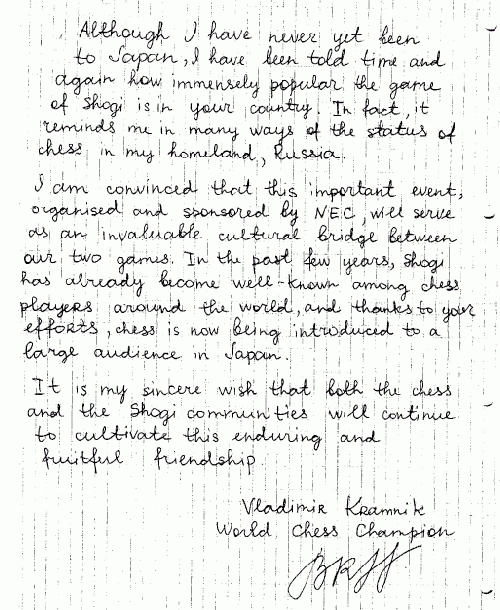 Although I have never yet been
to Japan, I have been told time and
again how immensely popular the game
of Shogi is in your country. In fact, it
reminds me in many ways of the status of
chess in my homeland, Russia.
I am convinced that this important event,
organised and sponsored by NEC, will serve
as an invaluable cultural bridge between
our two games. In the past few years, Shogi
has already become well-known among chess
players around the world, and thanks to your
efforts, chess is now being introduced to a
large audience in Japan.
It is my sincere wish that both the chess
and the Shogi communities will continue
to cultivate this enduring and
fruitful friendship.
Vladimir Kramnik
World Chess Champion